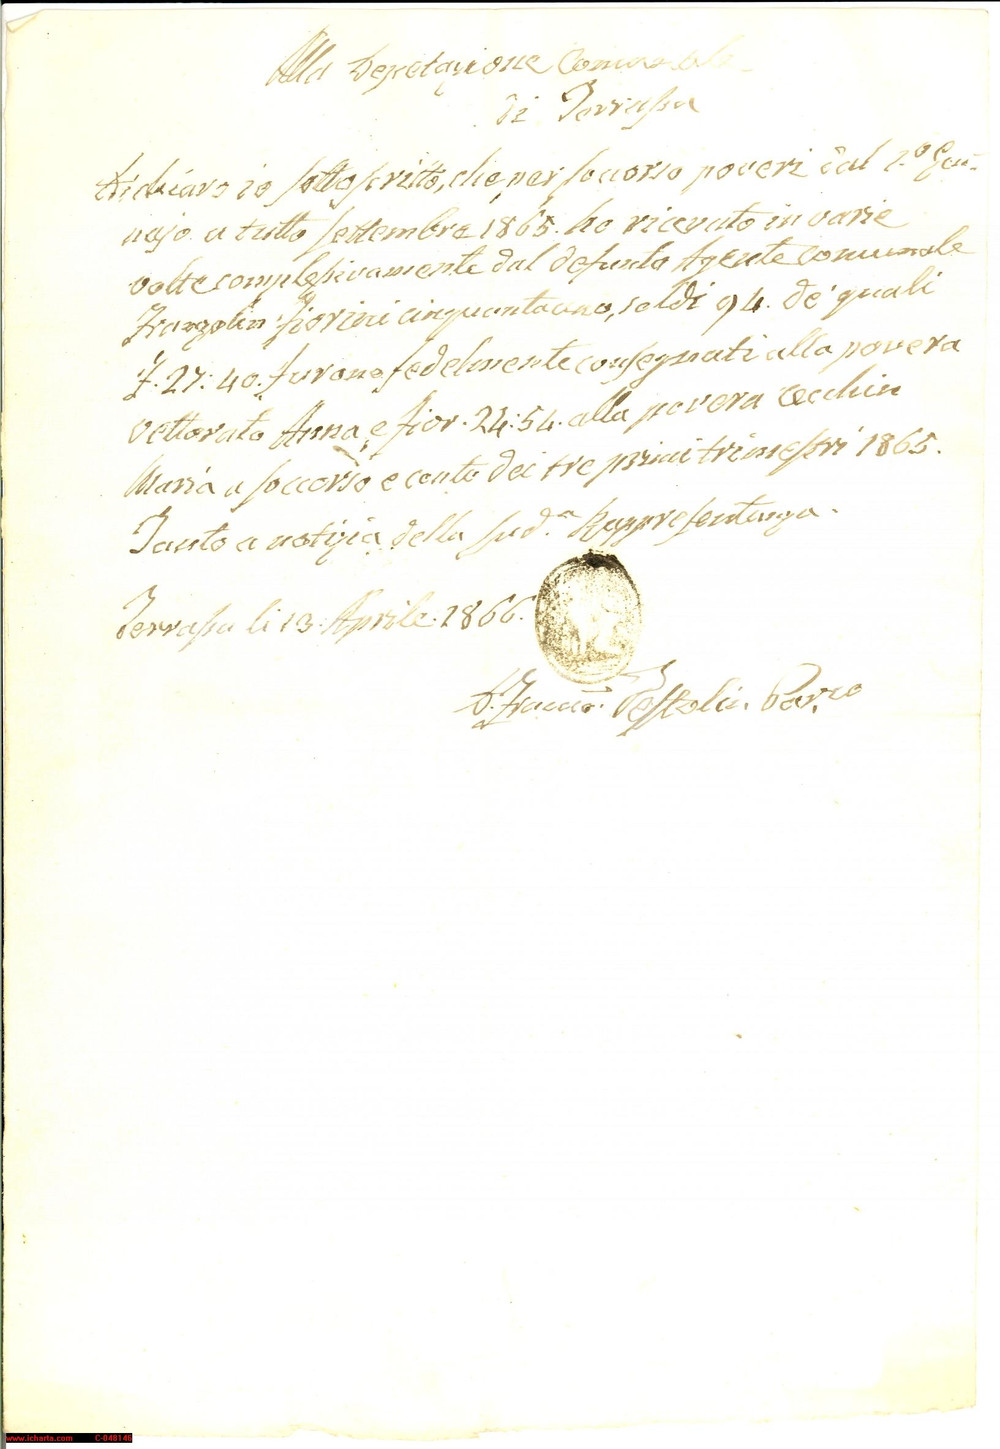 Alla Deputazione Comunale
di Terrassa
Dichiaro io sottoscritto, che per soccorso poveri dal 1.o Gen-
najo a tutto settembre 1865. ho ricevuto in varie
volte complessivamente dal defunto Agente comunale
Franzolin Fiorini cinquantauno, soldi 94. de' quali
F. 27:40. furono fedelmente consegnati alla povera
Vettorato Anna, e fior. 24:54. alla povera Cecchin
Maria a soccorso e conto dei tre primi trimestri 1865.
Tanto a notizia della sud.a Rappresentanza.
Terrassa li 13. Aprile. 1866.
D. Franc.o Testolin. Par.co
www.icharta.com C-048146